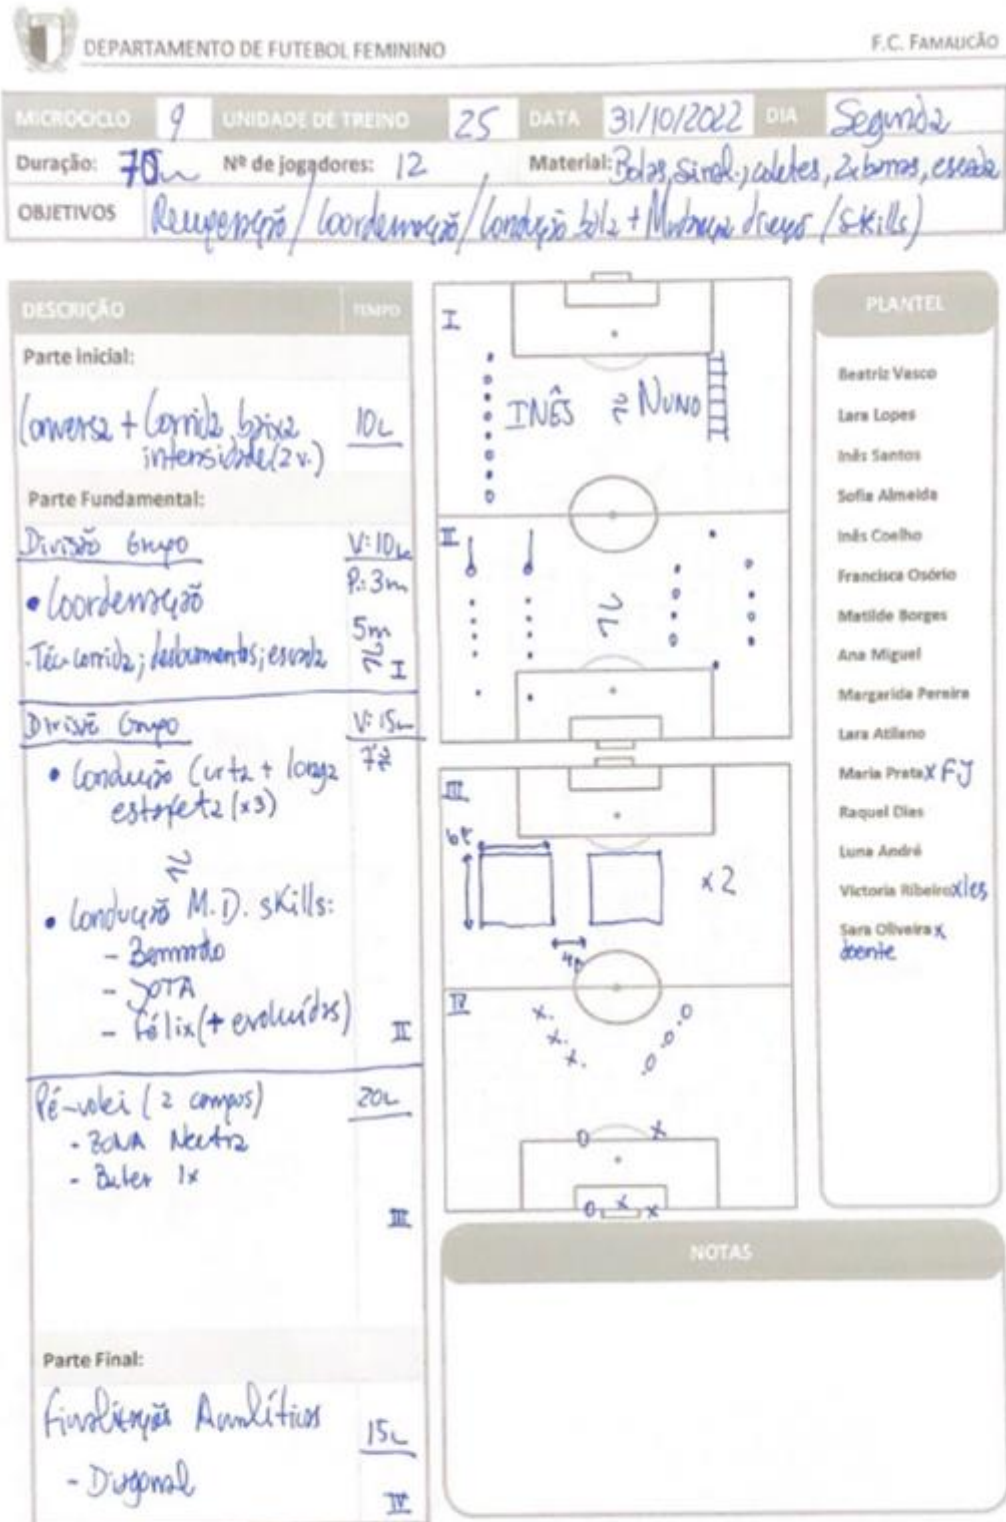 DEPARTAMENTO DE FUTEBOL FEMININO
F.C. FAMALICÃO
MICROCICLO 9 UNIDADE DE TREINO 25 DATA 31/10/2022 DIA Segunda
Duração: 70m Nº de jogadores: 12 Material: Bolas, sinal.; coletes, 2x barras, escada
OBJETIVOS Recuperação / Coordenação / Condução bola + Mudança direção (skills)
DESCRIÇÃO TEMPO
Parte inicial:
Conversa + Corrida baixa 10m
intensidade (2v.)
Parte Fundamental:
Divisão Grupo V: 10m
P: 3m
• Coordenação
5m
- Téc. corrida; deslocamentos; escada
I
Divisão Grupo V: 15m
• Condução Curta + longa 7
estafeta (x3)
• Condução M.D. skills:
- Bernardo
- JOTA
- Félix (+ evoluídas)
II
Pé-volei (2 campos) 20m
- ZONA Neutra
- Bater 1x
III
Parte Final:
Finalizações Analíticas
15m
- Diagonal
IV
I
INÊS NUNO
II
III
x2
IV
x x x
o o o o
o x
o x x
PLANTEL
Beatriz Vasco
Lara Lopes
Inês Santos
Sofia Almeida
Inês Coelho
Francisca Osório
Matilde Borges
Ana Miguel
Margarida Pereira
Lara Atilano
Maria Prata x FJ
Raquel Dias
Luna André
Victoria Ribeiro x les
Sara Oliveira x
doente
NOTAS